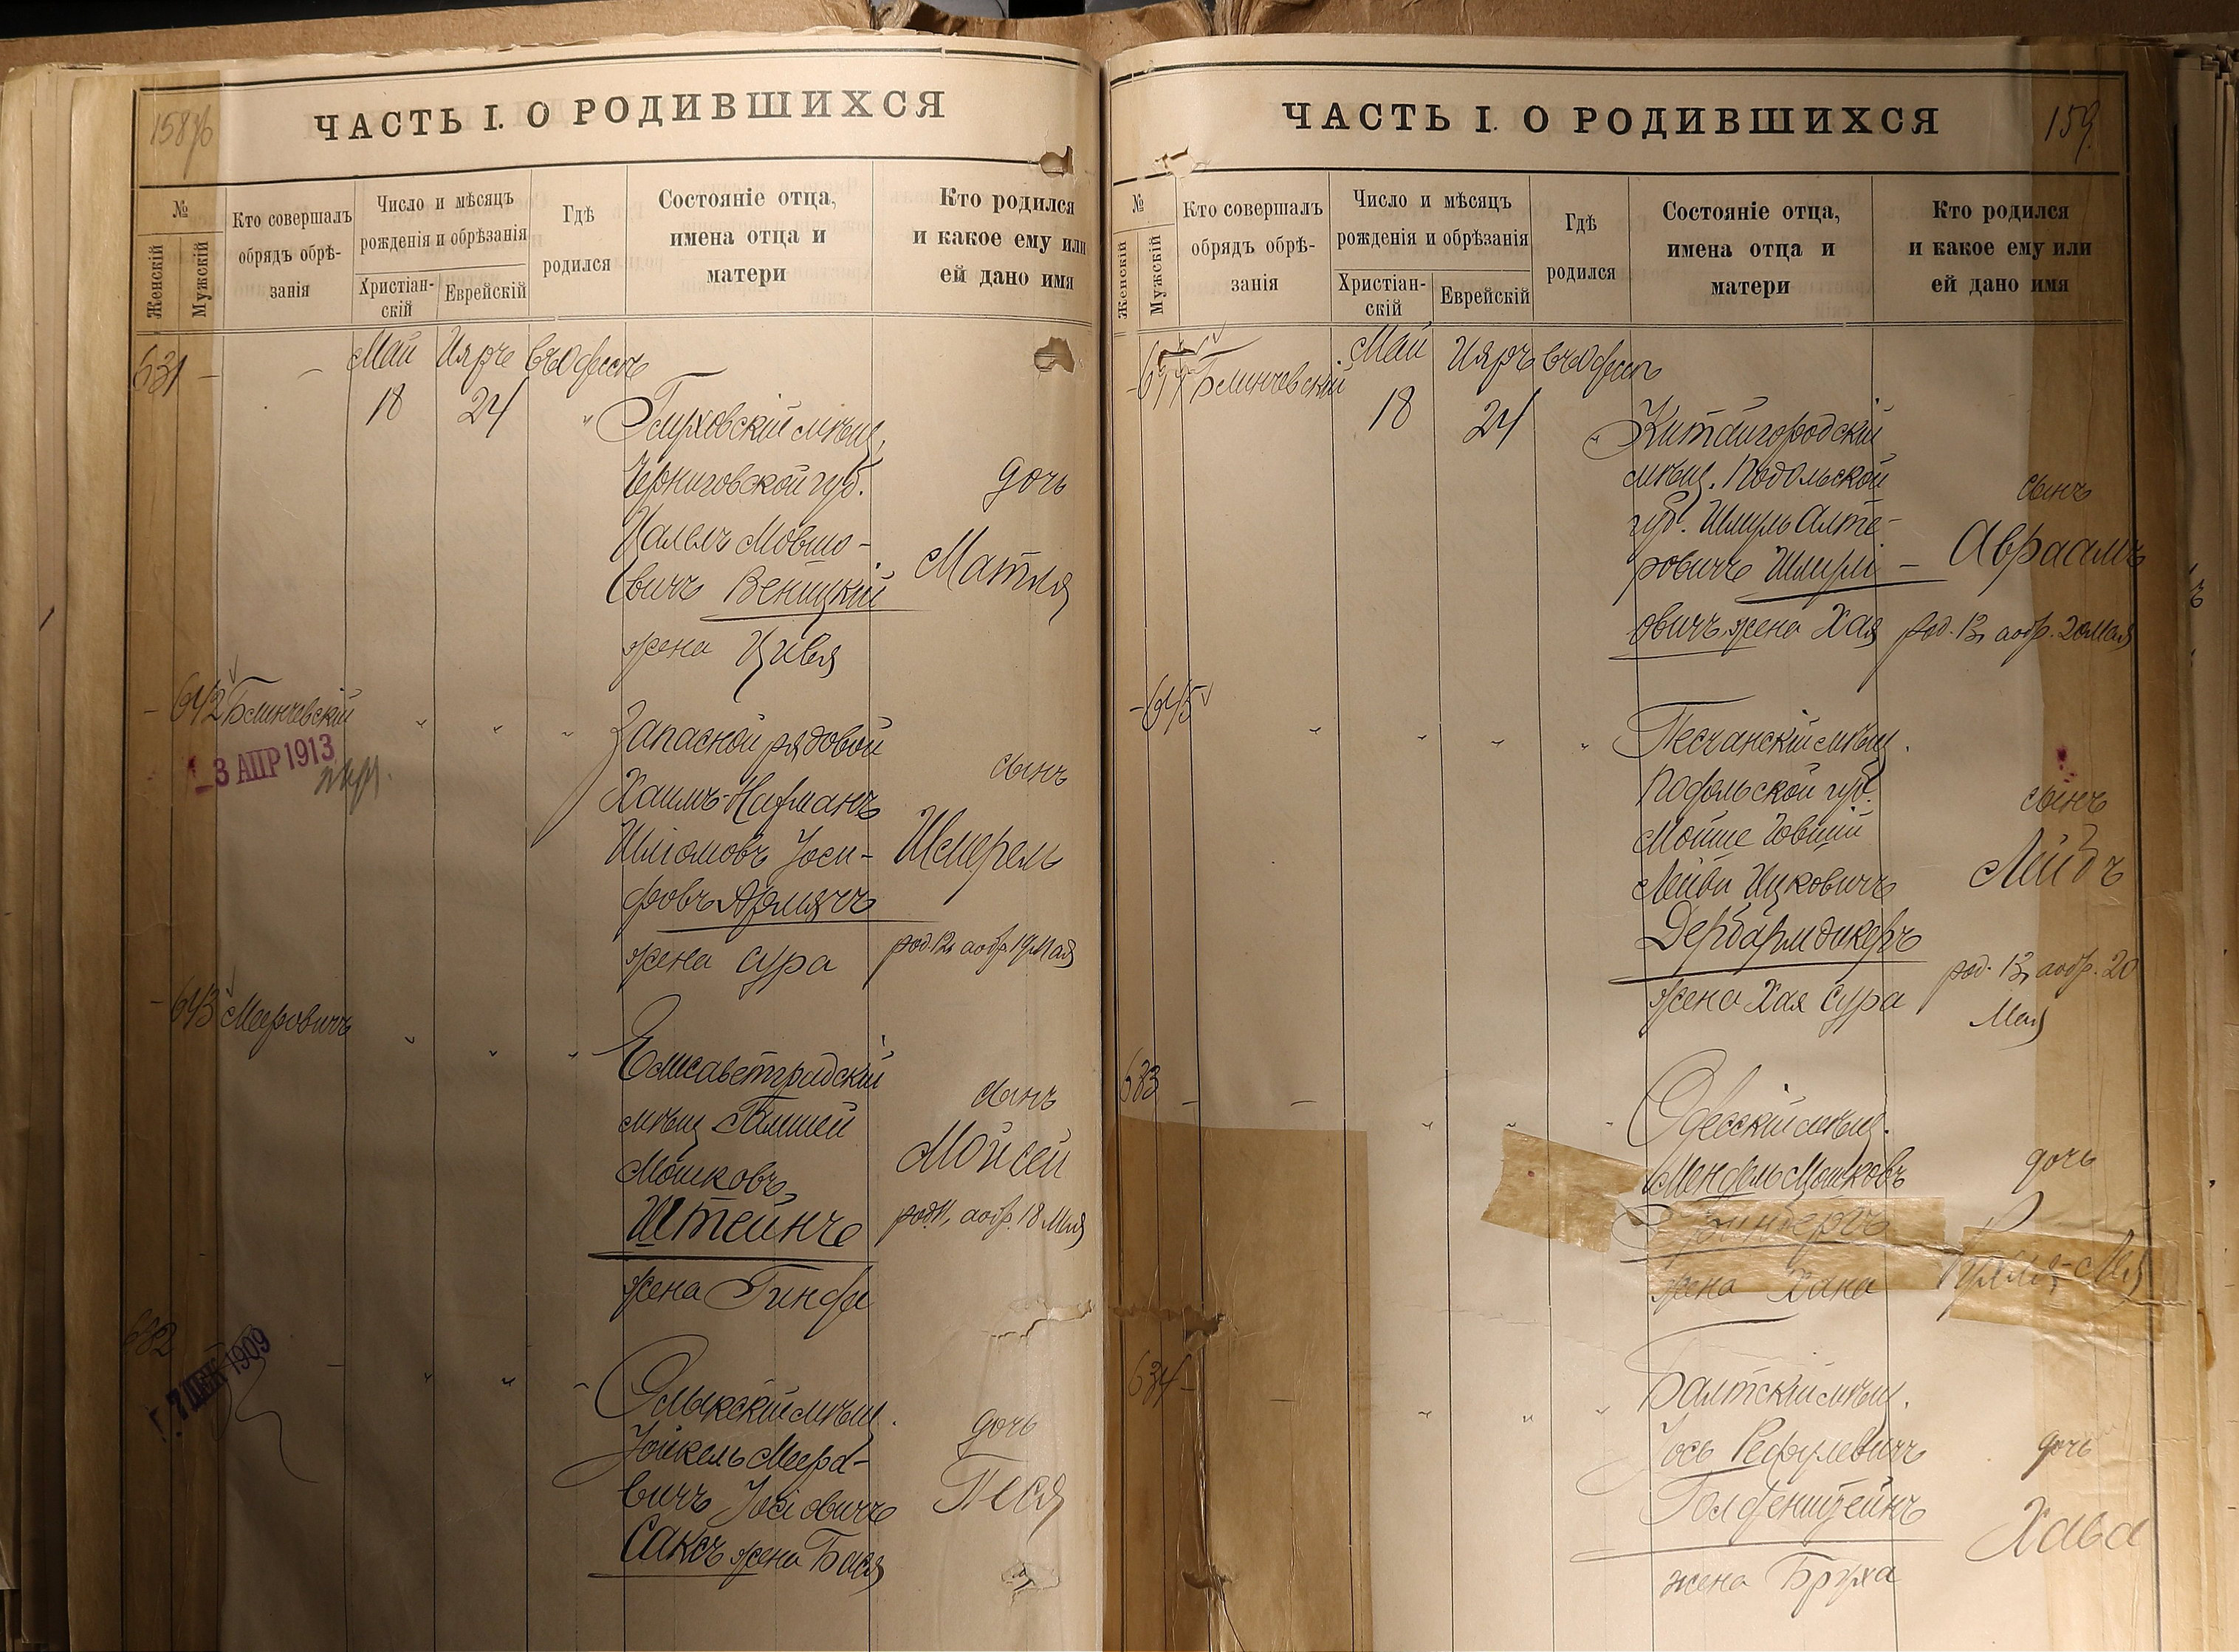 158об
ЧАСТЬ I. О РОДИВШИХСЯ
№
Женскій
Мужскій
Кто совершалъ
обрядъ обрѣ-
занія
Число и мѣсяцъ
рожденія и обрѣзанія
Христіан-
скій
Еврейскій
Гдѣ
родился
Состояніе отца,
имена отца и
матери
Кто родился
и какое ему или
ей дано имя
631 -
-
Май Ияръ въ Одессѣ
18 24 "
Глуховскій мѣщ.
Черниговской губ.
дочь
Мовшо-
вичъ Веницкій
Матля
жена Цивья
- 642 Блинчевскій
3 АПР 1913
Запасной рядовой
Хаимъ-Нахманъ
сынъ
Шліомовъ Іоси-
фовъ Армячъ
Шмерель
жена Сура
род. 12, а обр. 19 Мая
- 643 Мееровичъ
Елисаветградскій
мѣщ.
Мошковъ
сынъ
Мойсей
Штейнъ
род. 11, а обр. 18 Мая
жена Гинда
632
7 ДЕК 1909
Олыкскій мѣщ.
Іойкель Мееро-
дочь
вичъ Іосіовичъ
Песя
Саксъ жена Бася
159
ЧАСТЬ I. О РОДИВШИХСЯ
№
Женскій
Мужскій
Кто совершалъ
обрядъ обрѣ-
занія
Число и мѣсяцъ
рожденія и обрѣзанія
Христіан-
скій
Еврейскій
Гдѣ
родился
Состояніе отца,
имена отца и
матери
Кто родился
и какое ему или
ей дано имя
Блинчевскій
Май Ияръ въ Одессѣ
18 24 "
Китайгородскій
мѣщ. Подольской
сынъ
губ. Шмуль Алте-
ровичъ Шмулі-
Авраамъ
овичъ жена Хая
род. 13, а обр. 20 Мая
- 645
Песчанскій мѣщ.
Подольской губ.
сынъ
Мойше
Лейби Ицковичъ
Лейбъ
Дербармдикеръ
род. 13, а обр. 20
Мая
жена Хая Сура
633 - -
Одесскій мѣщ.
Мендель Мошковъ
дочь
жена Хана
634 - -
Балтскій мѣщ.
Іось Рефулевичъ
дочь
Голденштейнъ
Хава
жена Бруха